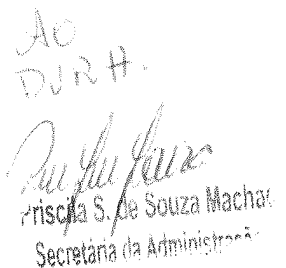 AO
DVRH.
Priscila S. de Souza Macha
Secretária da Administraçã